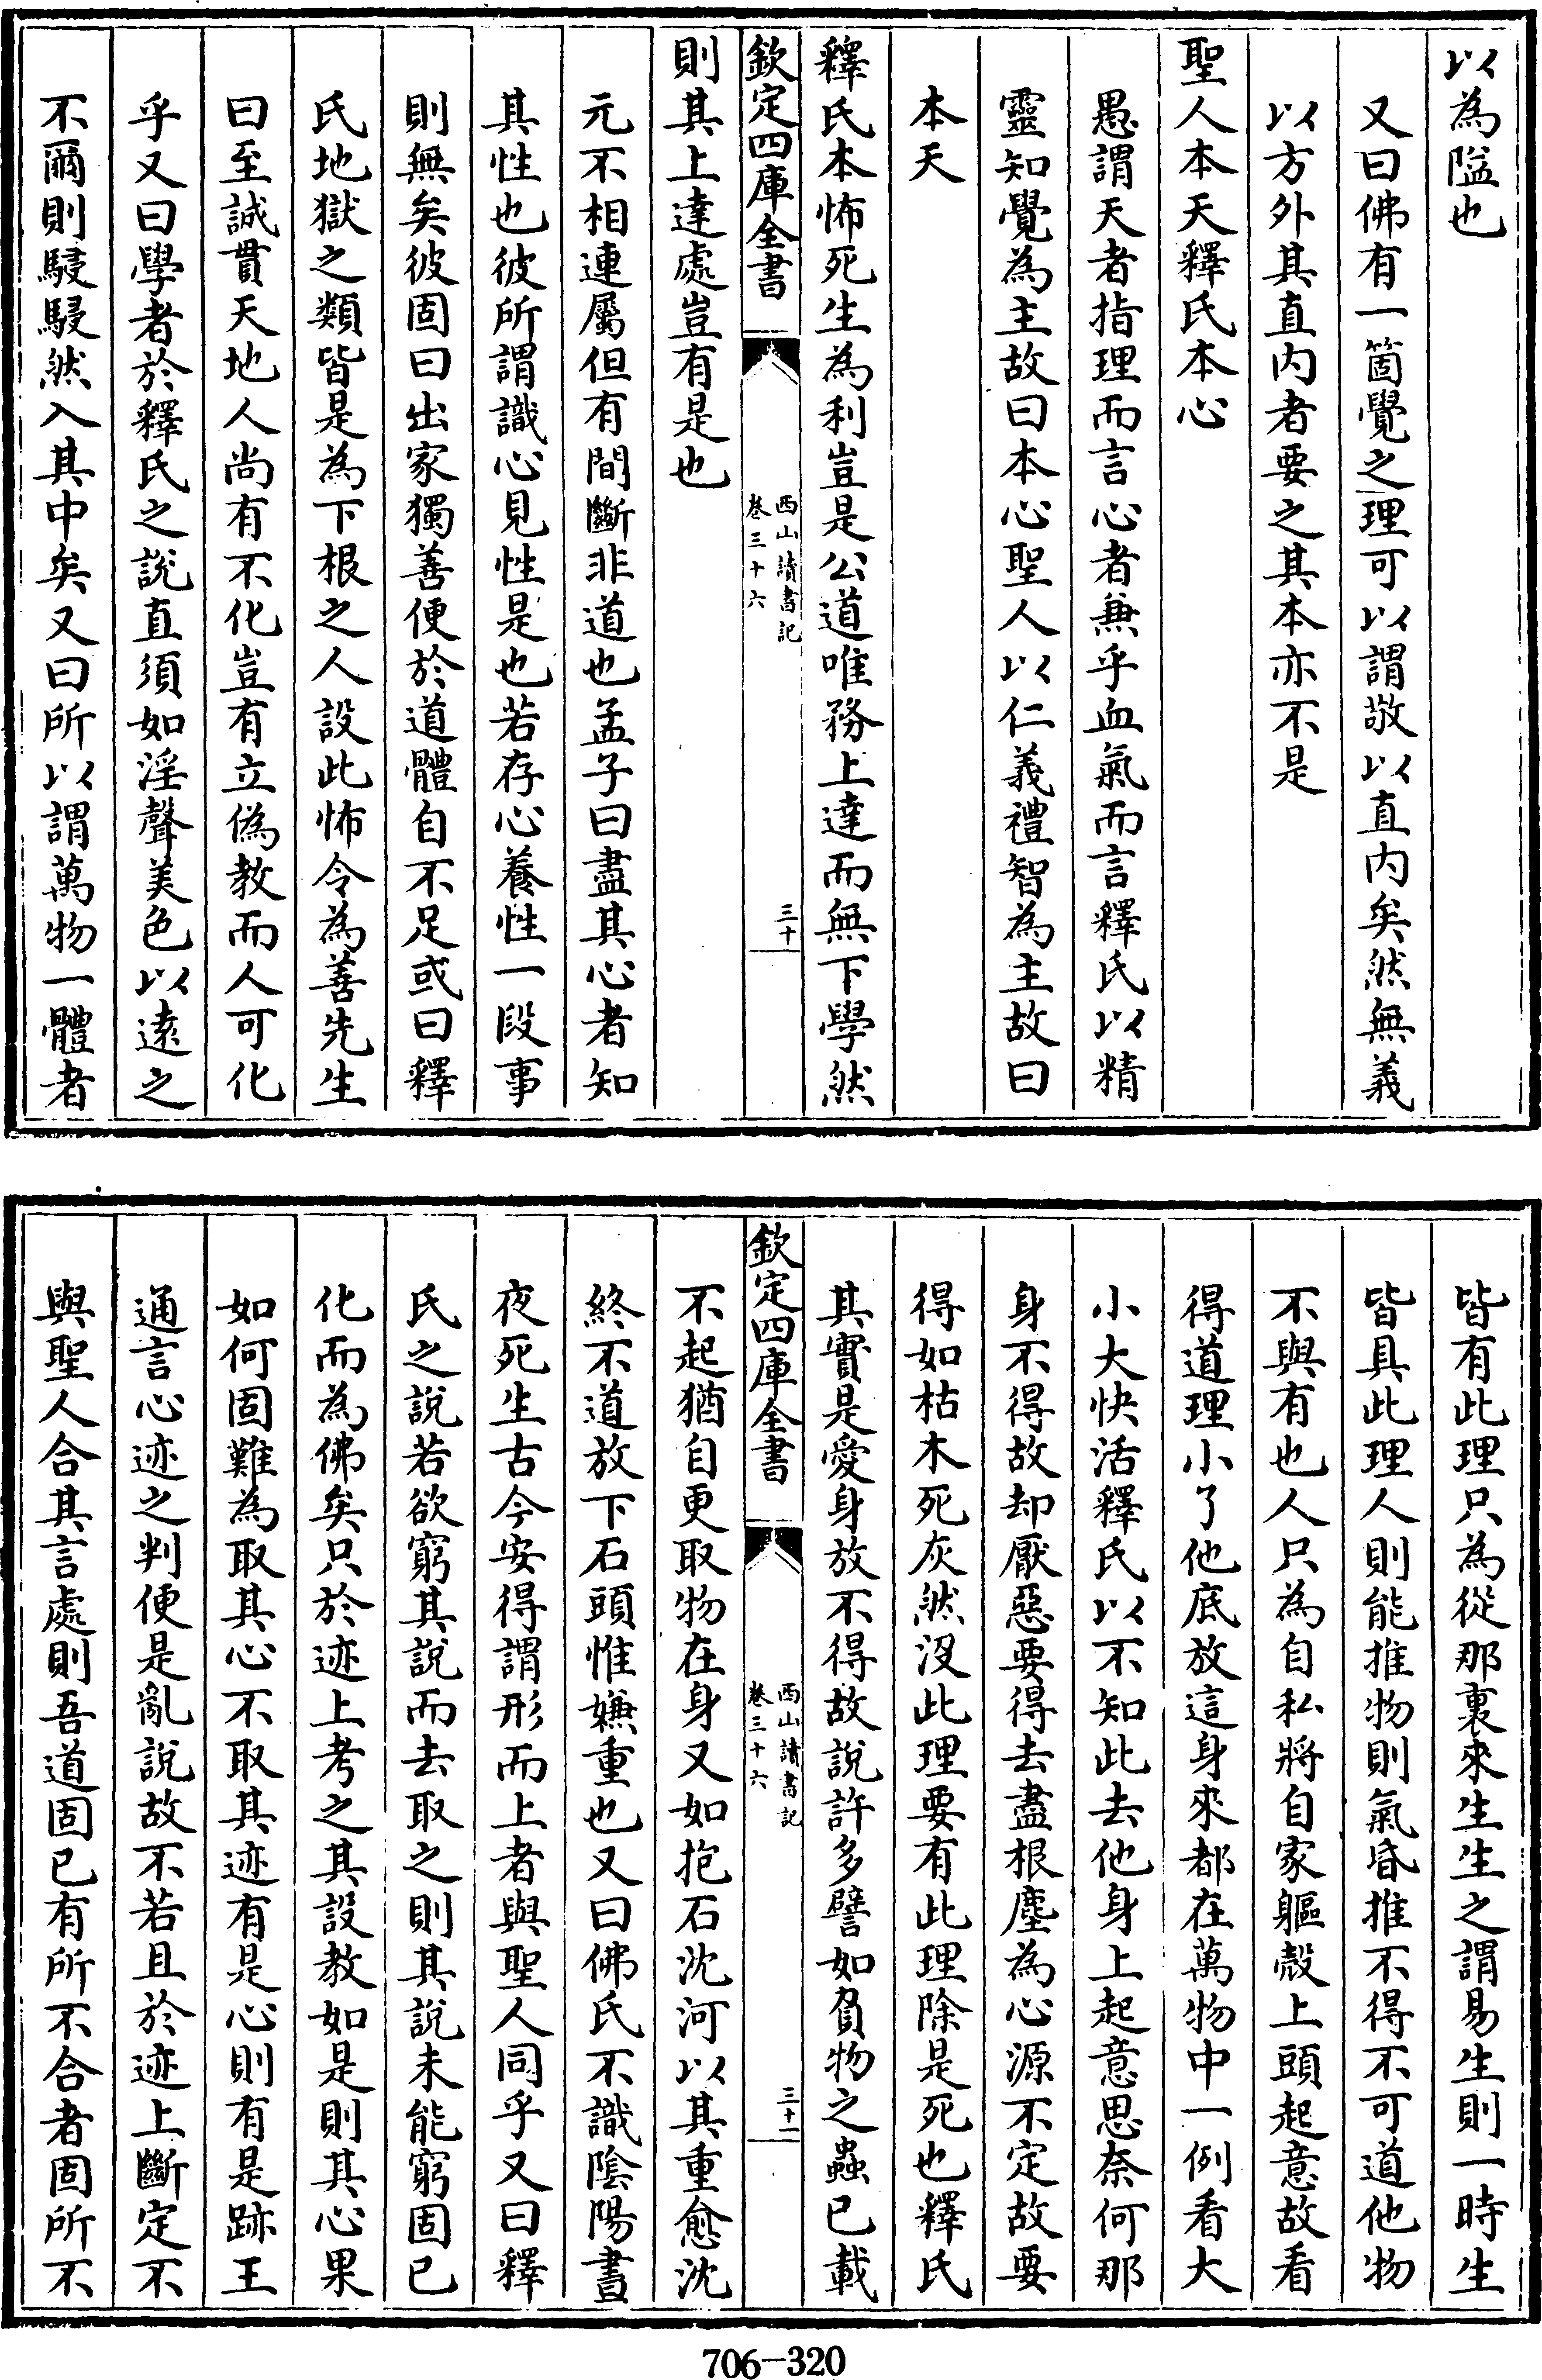 以為隘也
又曰佛有一箇覺之理可以謂敬以直内矣然無義
以方外其直内者要之其本亦不是
聖人本天釋氏本心
愚謂天者指理而言心者兼乎血氣而言釋氏以精
靈知覺為主故曰本心聖人以仁義禮智為主故曰
本天
釋氏本怖死生為利豈是公道唯務上達而無下學然
欽定四庫全書
西山讀書記
卷三十六
三十
則其上達處豈有是也
元不相連屬但有間斷非道也孟子曰盡其心者知
其性也彼所謂識心見性是也若存心養性一段事
則無矣彼固曰出家獨善便於道體自不足或曰釋
氏地獄之類皆是為下根之人設此怖令為善先生
曰至誠貫天地人尚有不化豈有立偽教而人可化
乎又曰學者於釋氏之說直須如淫聲美色以遠之
不爾則駸駸然入其中矣又曰所以謂萬物一體者
皆有此理只為從那裏來生生之謂易生則一時生
皆具此理人則能推物則氣昏推不得不可道他物
不與有也人只為自私將自家軀殻上頭起意故看
得道理小了他底放這身來都在萬物中一例看大
小大快活釋氏以不知此去他身上起意思奈何那
身不得故却厭惡要得去盡根塵為心源不定故要
得如枯木死灰然没此理要有此理除是死也釋氏
其實是愛身放不得故說許多譬如負物之蟲已載
欽定四庫全書
西山讀書記
卷三十六
三十一
不起猶自更取物在身又如抱石沈河以其重愈沈
終不道放下石頭惟嫌重也又曰佛氏不識陰陽晝
夜死生古今安得謂形而上者與聖人同乎又曰釋
氏之說若欲窮其說而去取之則其說未能窮固已
化而為佛矣只於迹上考之其設教如是則其心果
如何固難為取其心不取其迹有是心則有是跡王
通言心迹之判便是亂說故不若且於迹上斷定不
與聖人合其言處則吾道固已有所不合者固所不
706-320